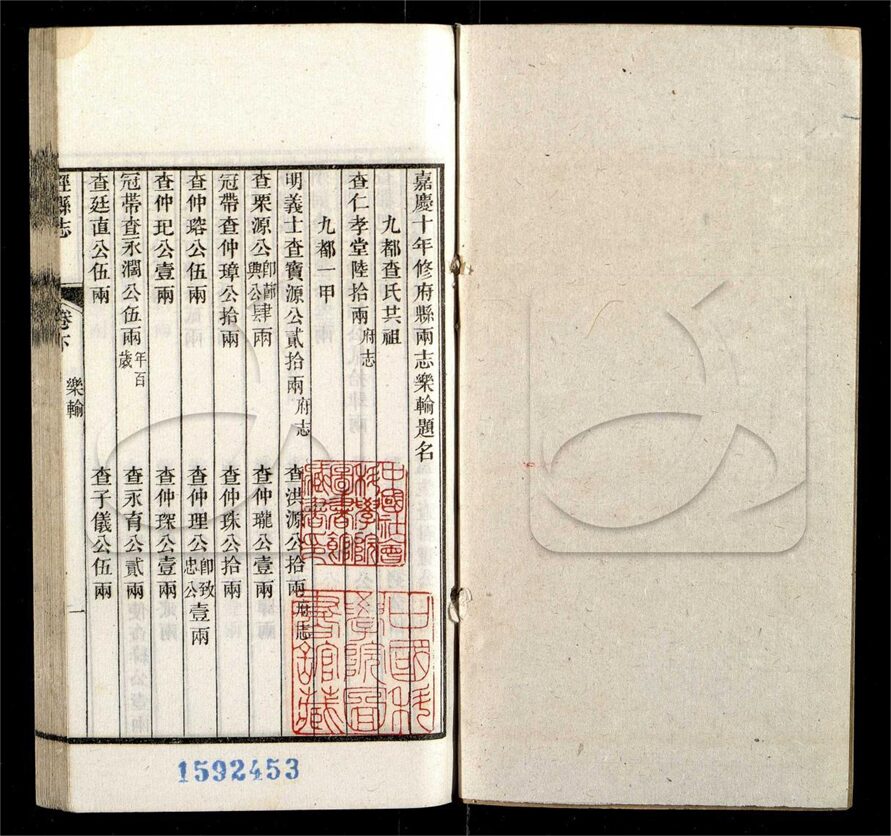 嘉慶十年修府縣兩志樂輸題名
九都查氏共祖
查仁孝堂陸拾兩府志
九都一甲
明義士查寶源公貳拾兩府志
查洪源公拾兩府志
查栗源公卽節興公肆兩
查仲瓏公壹兩
冠帶查仲璋公拾兩
查仲珠公拾兩
查仲瑢公伍兩
查仲理公卽致忠公壹兩
查仲玘公壹兩
查仲琛公壹兩
冠帶查永瀾公伍兩年百歲
查永育公貳兩
查廷直公伍兩
查子儀公伍兩
涇縣志
卷下
樂輸
一
中國社會
科學院
圖書館
藏書印
中國科
學院圖
書館藏
1592453